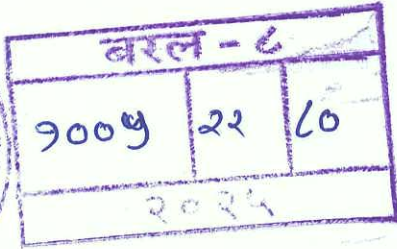 बरल - ८
१००५ २२ ८०
२०२५